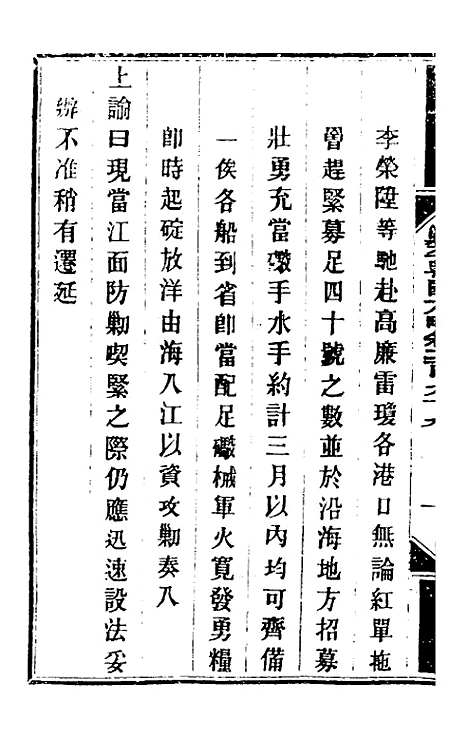 李榮陞等馳赴高廉雷瓊各港口無論紅單拖
罟趕緊募足四十號之數並於沿海地方招募
壯勇充當礮手水手約計三月以內均可齊備
一俟各船到省卽當配足礮械軍火寬發勇糧
卽時起碇放洋由海入江以資攻勦奏入
上諭曰現當江面防勦喫緊之際仍應迅速設法妥
辦不准稍有遷延